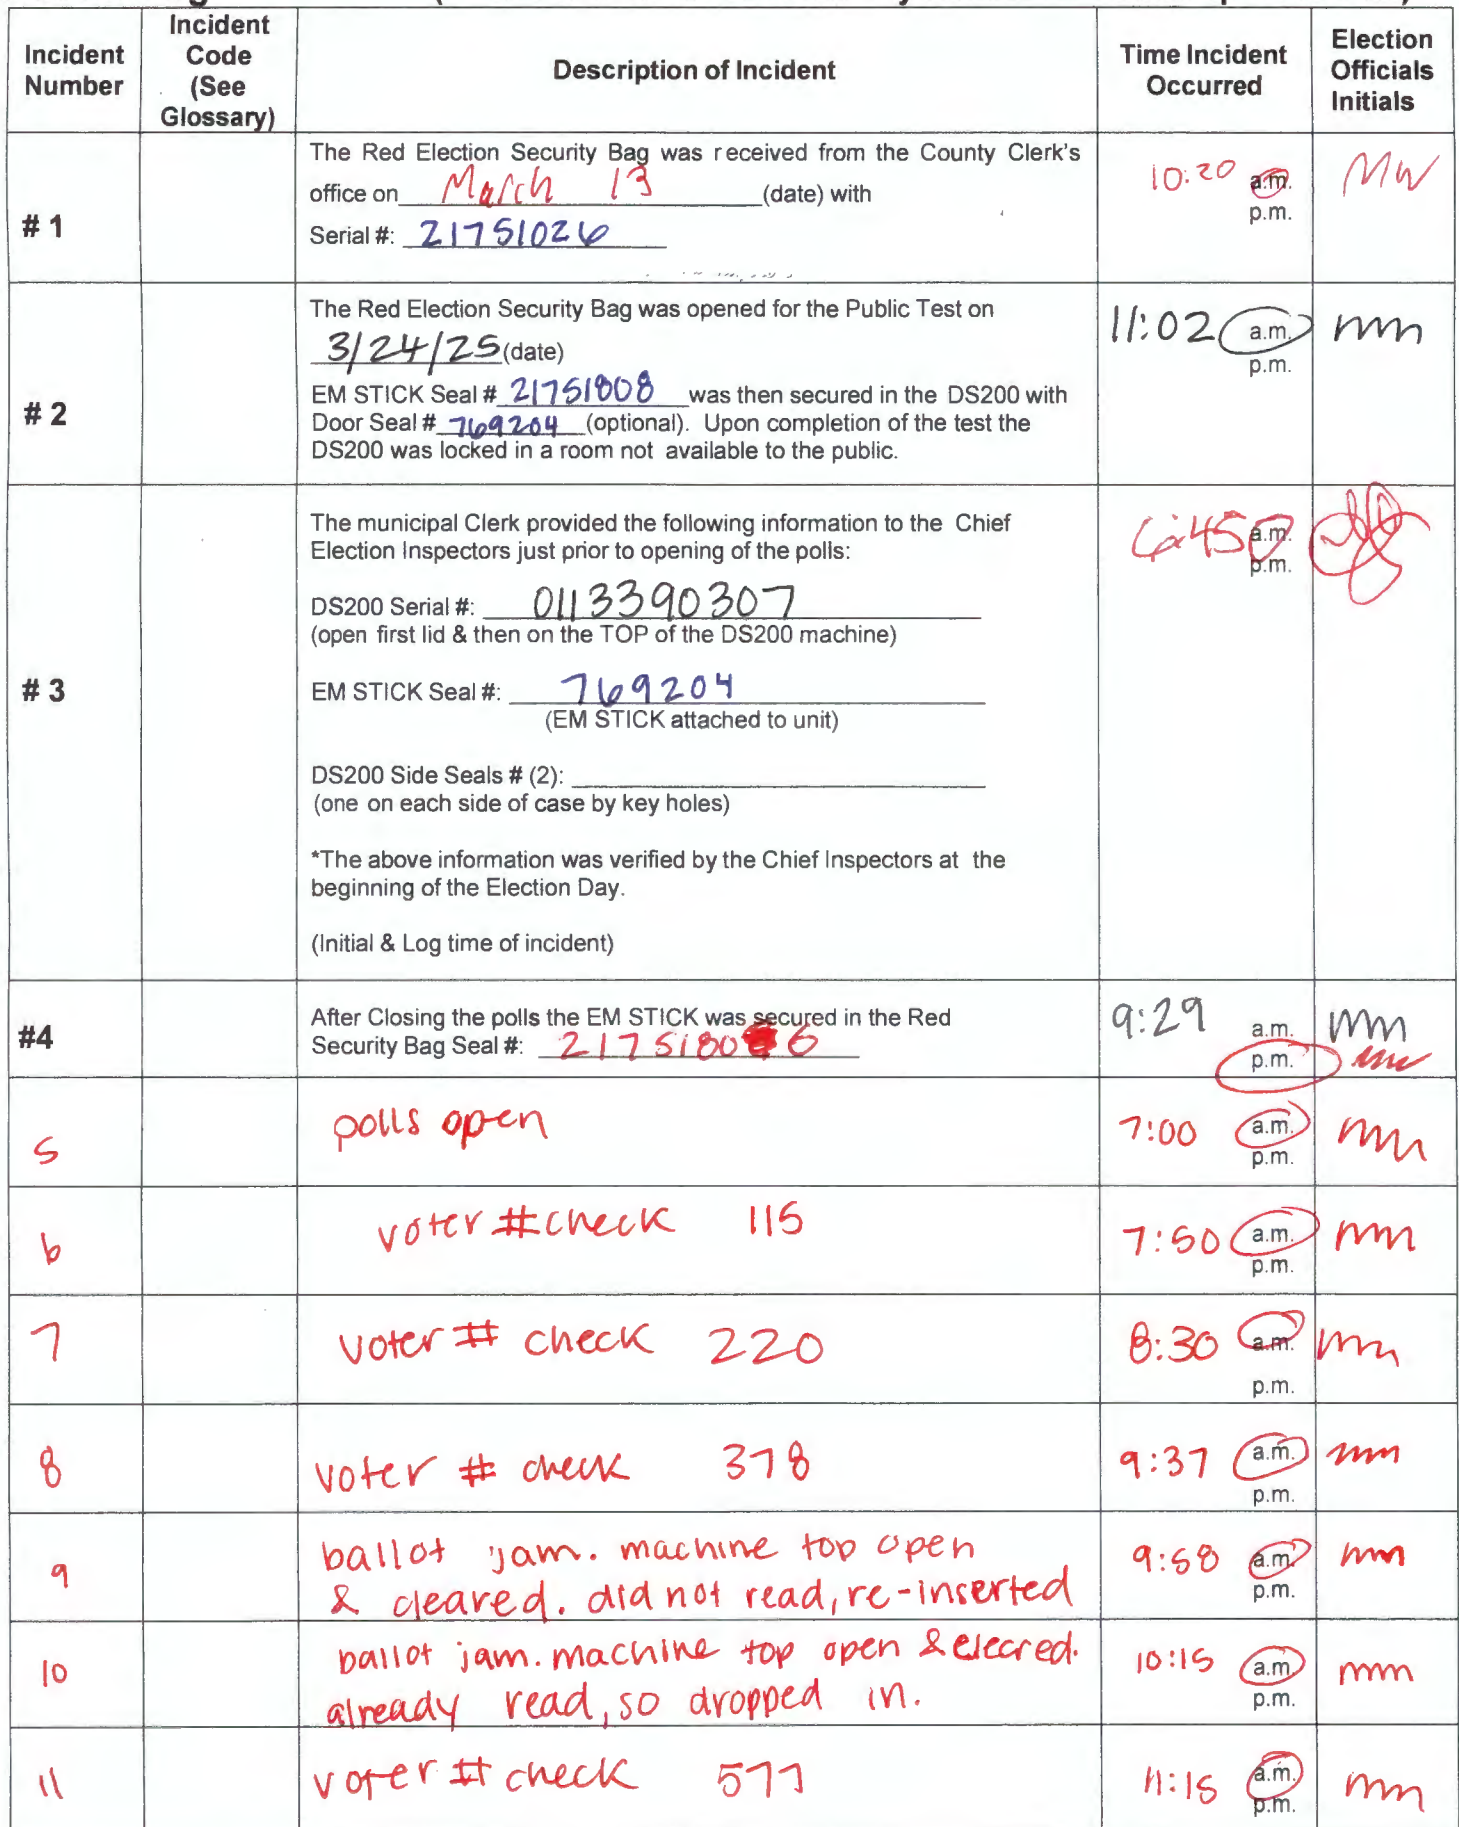 Incident Number
Incident Code (See Glossary)
Description of Incident
Time Incident Occurred
Election Officials Initials
# 1
The Red Election Security Bag was received from the County Clerk's
office on March 13 (date) with
Serial #: 21751026
10:20 a.m.
p.m.
MW
# 2
The Red Election Security Bag was opened for the Public Test on
3/24/25 (date)
EM STICK Seal # 21751808 was then secured in the DS200 with
Door Seal # 769204 (optional). Upon completion of the test the
DS200 was locked in a room not available to the public.
11:02 a.m.
p.m.
mm
# 3
The municipal Clerk provided the following information to the Chief
Election Inspectors just prior to opening of the polls:
DS200 Serial #: 0113390307
(open first lid & then on the TOP of the DS200 machine)
EM STICK Seal #: 769204
(EM STICK attached to unit)
DS200 Side Seals # (2):
(one on each side of case by key holes)
*The above information was verified by the Chief Inspectors at the
beginning of the Election Day.
(Initial & Log time of incident)
6:45 a.m.
p.m.
#4
After Closing the polls the EM STICK was secured in the Red
Security Bag Seal #: 2175180 6
9:29 a.m.
p.m.
mm
5
polls open
7:00 a.m.
p.m.
mm
6
voter # check 115
7:50 a.m.
p.m.
mm
7
voter # check 220
8:30 a.m.
p.m.
mm
8
voter # check 378
9:37 a.m.
p.m.
mm
9
ballot jam. machine top open
& cleared. did not read, re-inserted
9:58 a.m.
p.m.
mm
10
ballot jam. machine top open &
already read, so dropped in.
10:15 a.m.
p.m.
mm
11
voter # check 577
11:15 a.m.
p.m.
mm